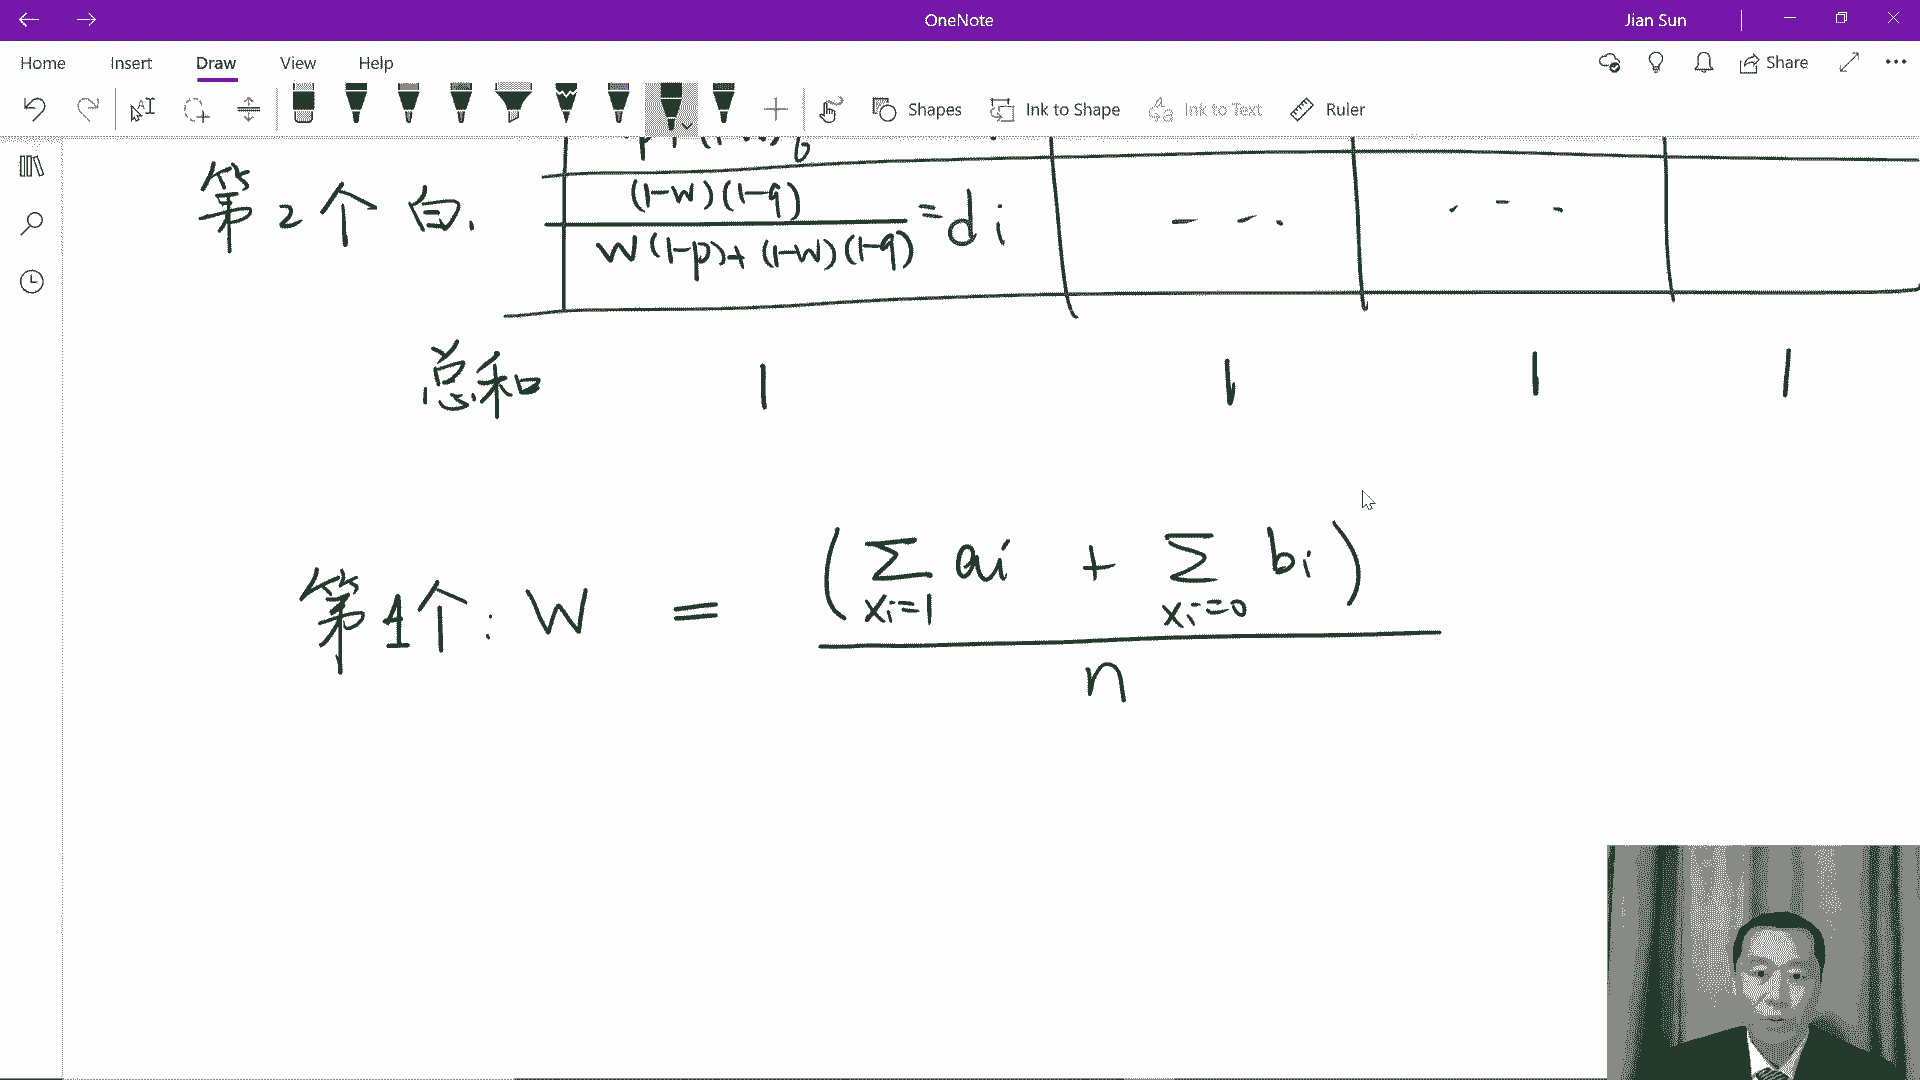 OneNote
Jian Sun
Home Insert Draw View Help
Share
Shapes Ink to Shape Ink to Text Ruler
第2个 白.
(1-w)(1-q)
w(1-p)+(1-w)(1-q) = di
-- -.
. - .
总和 1 1 1 1
第1个: W = (Σ ai + Σ bi)
xi=1 xi=0
n